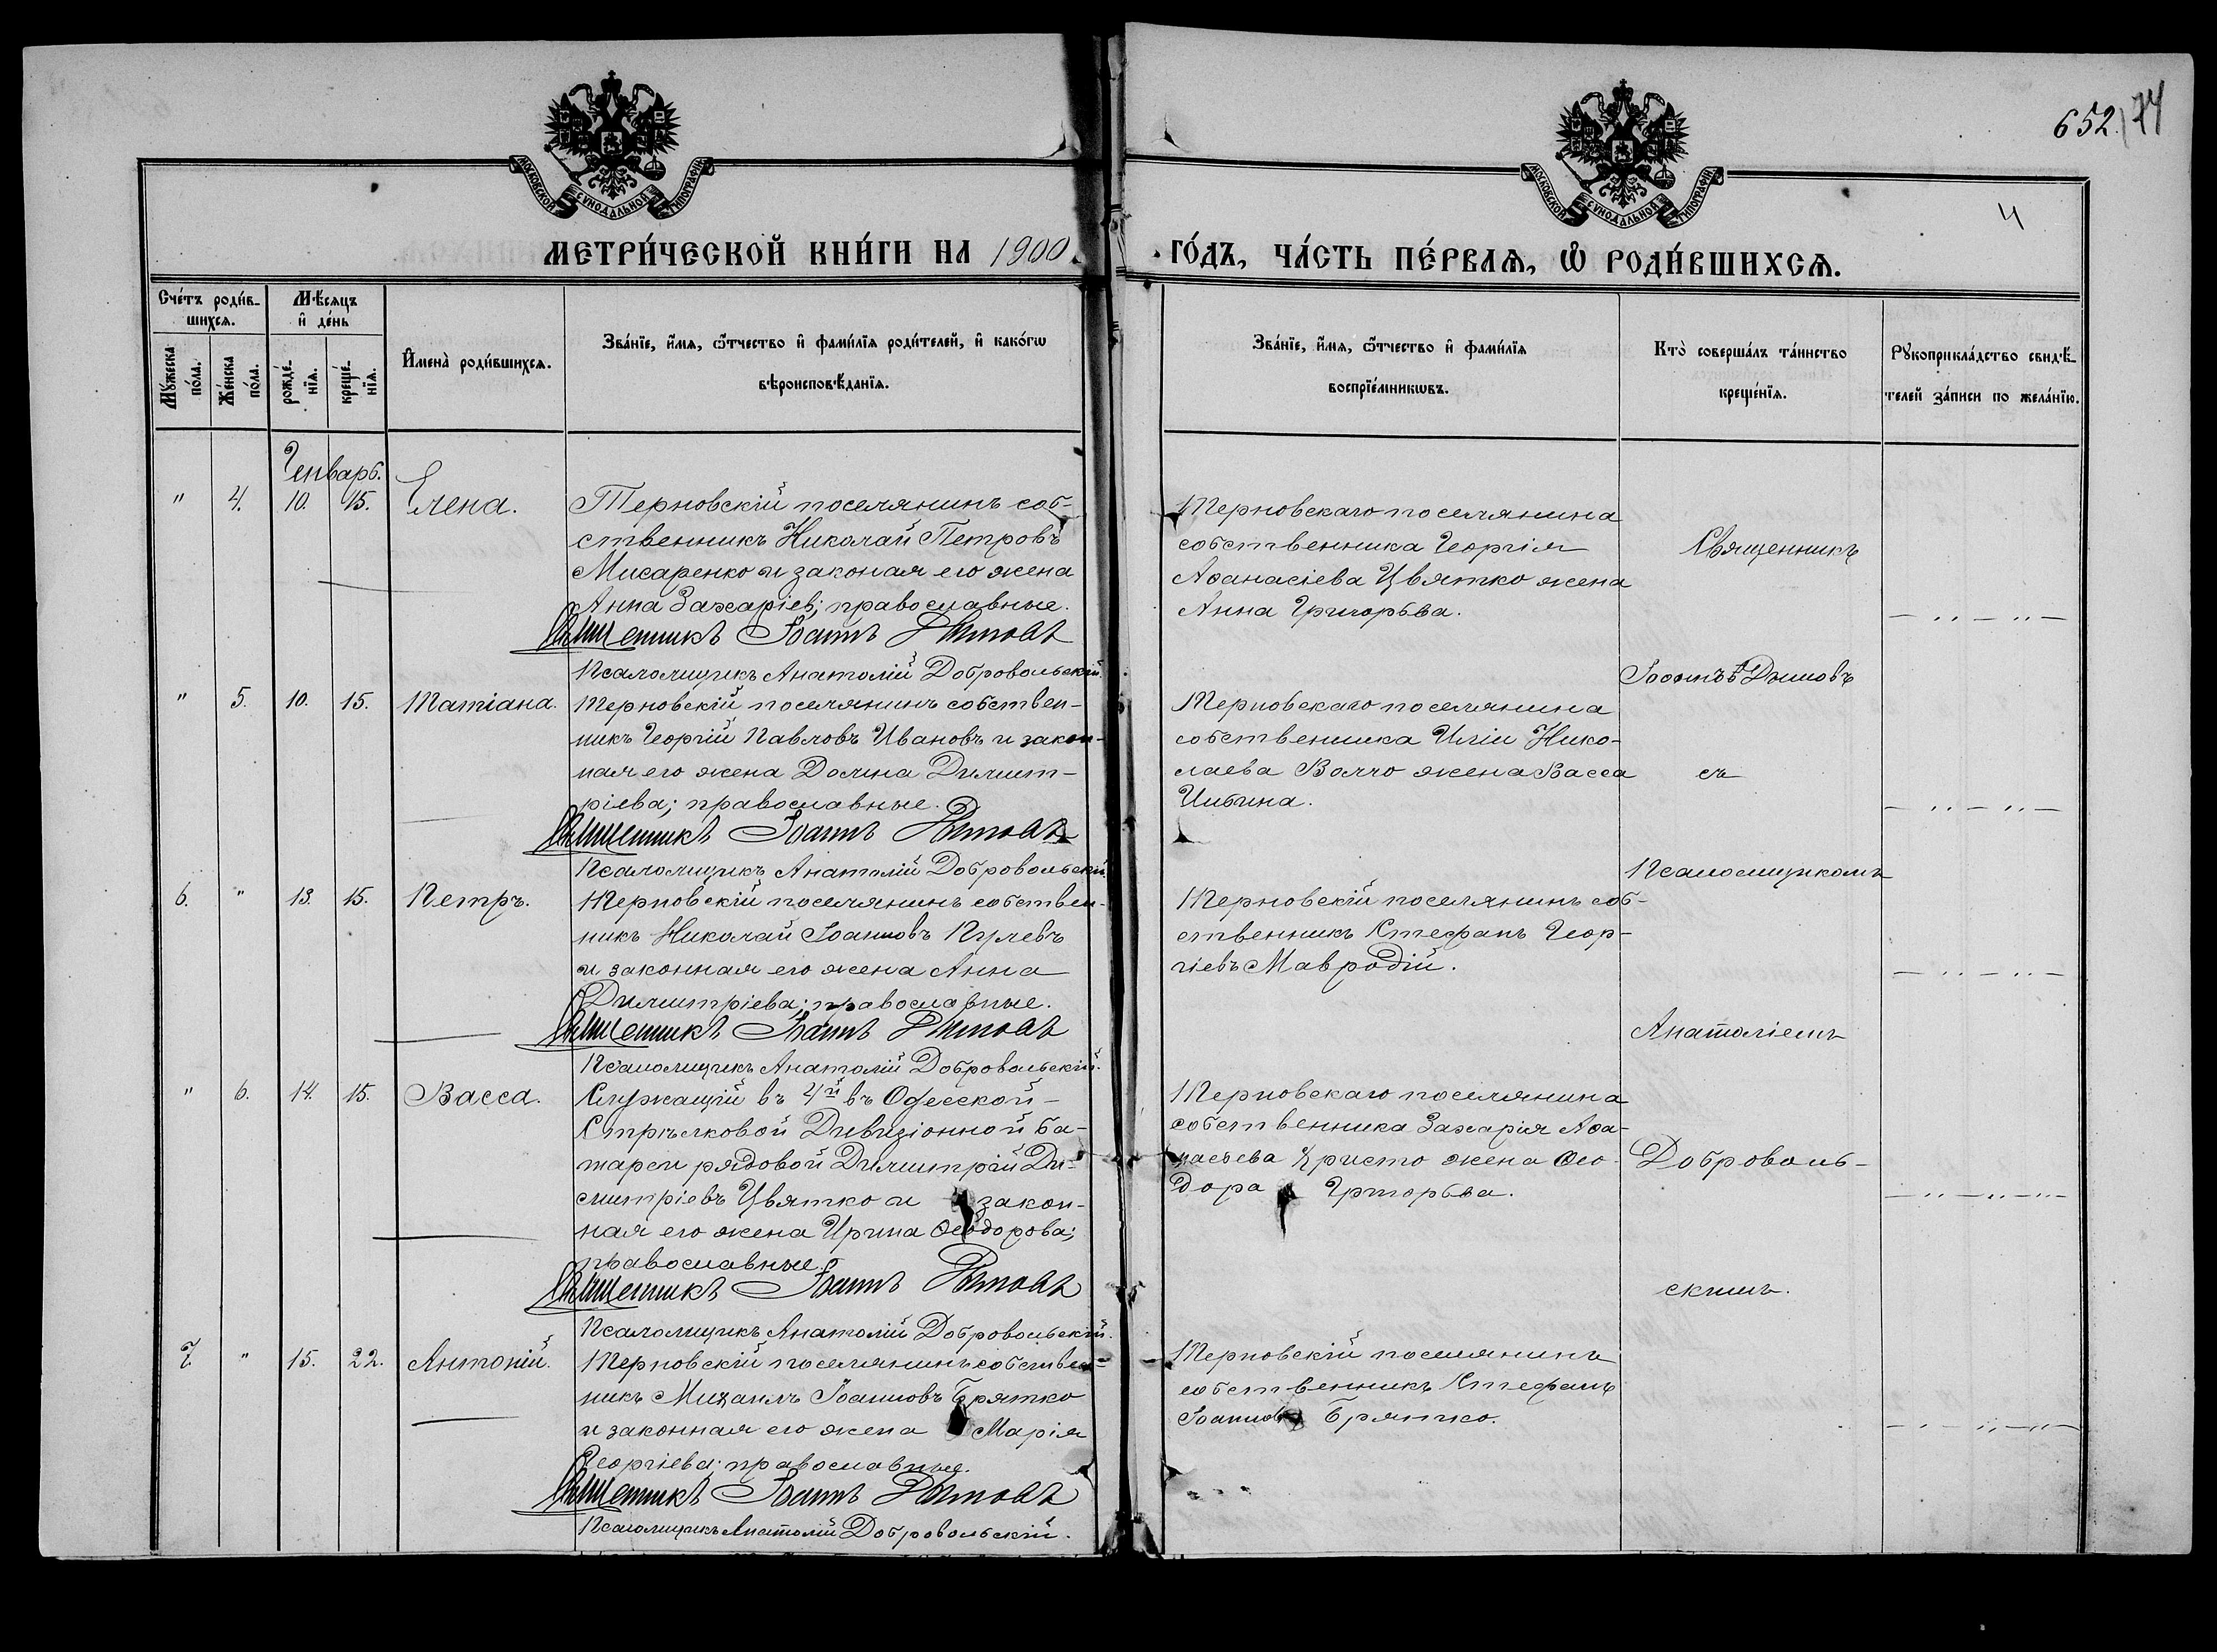 652. 74
4
МОСКОВСКОЙ СѴНОДАЛЬНОЙ ТИПОГРАФІИ
МОСКОВСКОЙ СѴНОДАЛЬНОЙ ТИПОГРАФІИ
МЕТРИ́ЧЕСКОЙ КНИ́ГИ НА 1900 ГО́ДЪ, ЧА́СТЬ ПЕ́РВАѦ, Ѡ҆ РОДИ́ВШИХСѦ.
Сче́тъ роди́в-
шихсѧ.
Мꙋжеска по́ла.
Же́нска по́ла.
Мѣ́сѧцъ и҆ де́нь
рожде́-
нїѧ.
креще́-
нїѧ.
И҆мена̀ роди́вшихсѧ.
Зва́нїе, и҆́мѧ, ѻ҆́тчество и҆ фами́лїѧ роди́телей, и҆ како́гѡ
вѣроисповѣ́данїѧ.
Зва́нїе, и҆́мѧ, ѻ҆́тчество и҆ фами́лїѧ
воспрїе́мникѡвъ.
Кто̀ соверша́лъ та́инство
креще́нїѧ.
Рꙋкоприкла́дство свидѣ́-
телей за́писи по жела́нїю.
Генварь.
" 4. 10. 15. Елена.
Терновскій поселянинъ соб-
ственникъ Николай Петровъ
Мисаренко и законая его жена
Анна Захаріев; православные.
Священникъ Іоаннъ Дымовъ
Псаломщикъ Анатолій Добровольскій.
Терновскаго поселянина
собственника Георгія
Аѳанасіева Цвятко жена
Анна Григорьва.
Священникъ
Іоаннъ Дымовъ
" 5. 10. 15. Татіана.
Терновскій поселянинъ собствен-
никъ Георгій Павловъ Ивановъ и закон-
ная его жена Домна Димит-
ріева; православные.
Священникъ Іоаннъ Дымовъ
Псаломщикъ Анатолій Добровольскій.
Терновскаго поселянина
собственника Иліи Нико-
лаева Волчо жена Васса
Ильина.
съ
Псаломщикомъ
6. " 13. 15. Петръ.
Терновскій поселянинъ собствен-
никъ Николай Іоанновъ Кулевъ
и законная его жена Анна
Димитріева; православные.
Священникъ Іоаннъ Дымовъ
Псаломщикъ Анатолій Добровольскій.
Терновскій поселянинъ соб-
ственникъ Стефанъ Геор-
гіевъ Мавродій.
Анатоліемъ
" 6. 14. 15. Васса.
Служащій въ 4й въ Одесской
Стрѣлковой Дивизіонной ба-
тареи рядовой Димитрій Ди-
митріевъ Цвятко и закон-
ная его жена Ирина Ѳеодорова;
православные.
Священникъ Іоаннъ Дымовъ
Псаломщикъ Анатолій Добровольскій.
Терновскаго поселянина
собственника Захарія Аѳа-
насьева Христо жена Ѳео-
дора Григорьва.
Доброволь-
скимъ.
7. " 15. 22. Антоній.
Терновскій поселянинъ собствен-
никъ Михаилъ Іоанновъ Брятко
и законная его жена Марія
Георгіева; православные.
Священникъ Іоаннъ Дымовъ
Псаломщикъ Анатолій Добровольскій.
Терновскій поселянинъ
собственникъ Стефанъ
Іоанновъ Брятко.